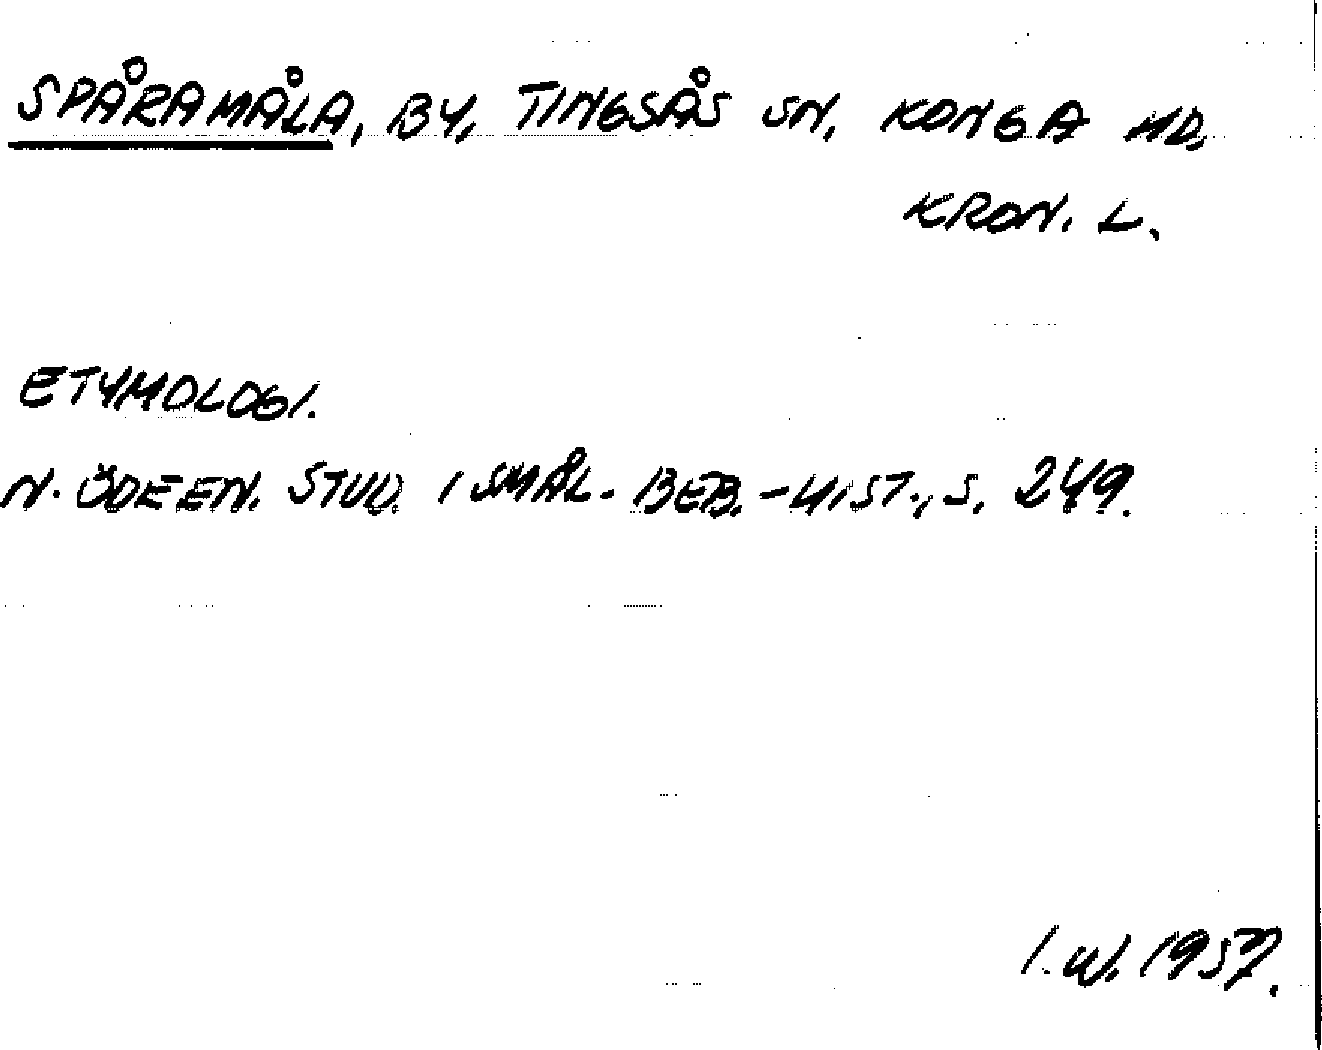 SPÅRAMÅLA, BY, TINGSÅS SN, KONGA HD,
KRON. L.
ETYMOLOGI.
N. ÖDEEN. STUD. I SMÅL. BEB.-HIST., S. 249.
I.W. 1957.